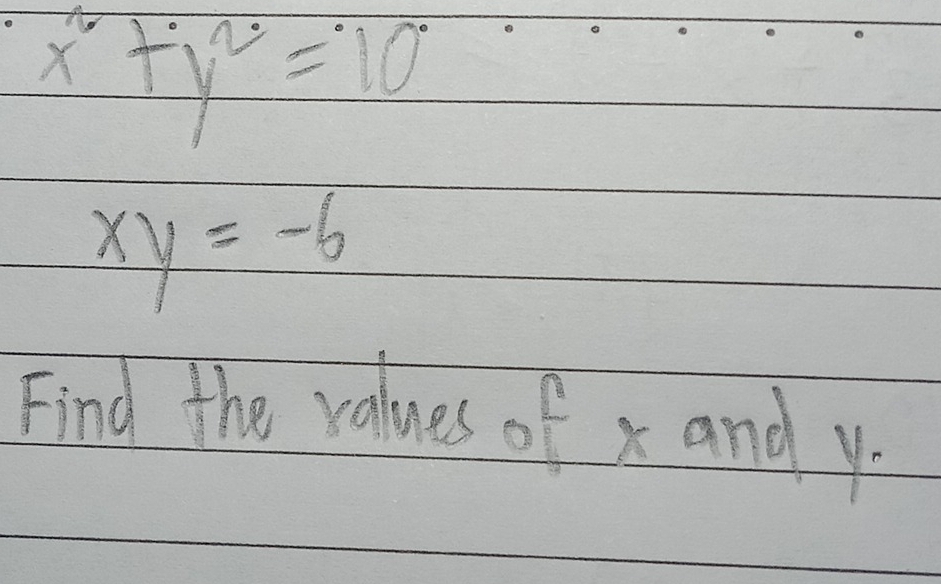 x² + y² = 10
xy = -6
Find the values of x and y.